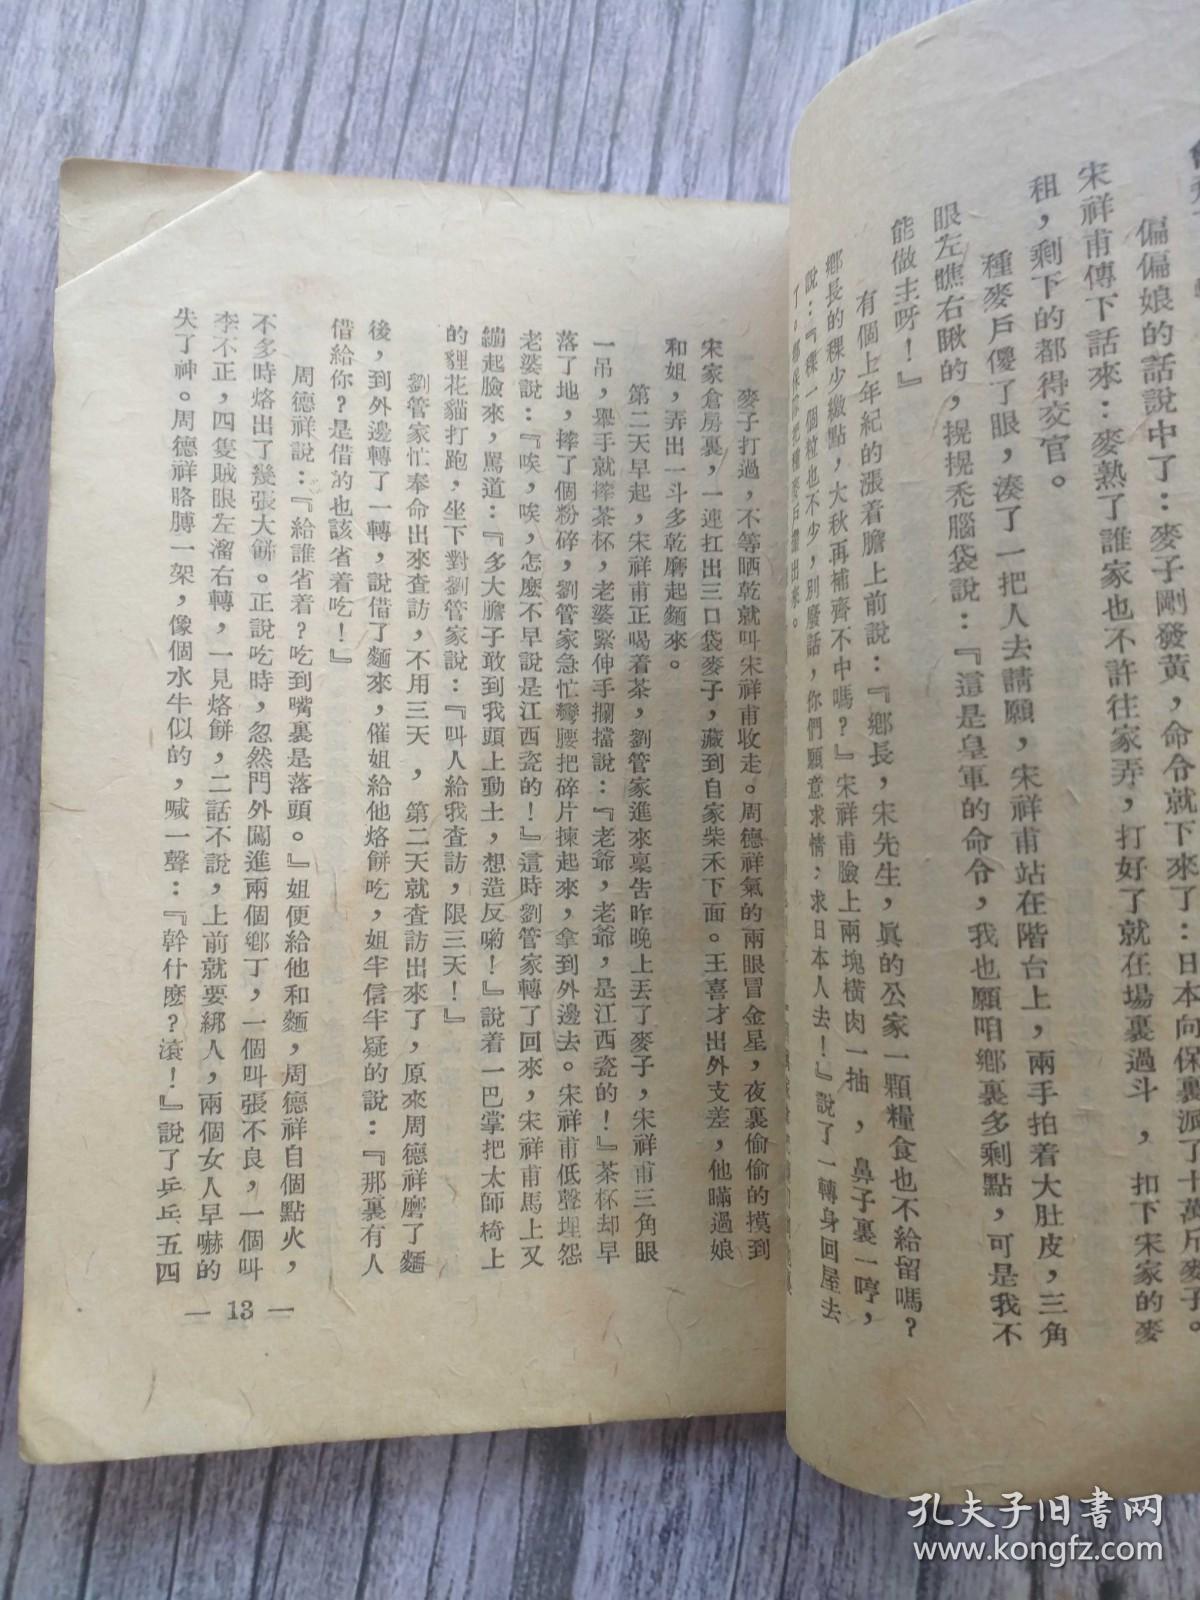 偏偏娘的話說中了：麥子剛發黃，命令就下來了：日本向保裏派了十萬斤麥子。
宋祥甫傳下話來：麥熟了誰家也不許往家弄，打好了就在場裏過斗，扣下宋家的麥
租，剩下的都得交官。
種麥戶傻了眼，湊了一把人去請願，宋祥甫站在階台上，兩手拍着大肚皮，三角
眼左瞧右瞅的，搃搃禿腦袋說：『這是皇軍的命令，我也願咱鄉裏多剩點，可是我不
能做主呀！』
有個上年紀的漲着膽上前說：『鄉長，宋先生，眞的公家一顆糧食也不給留嗎？
鄉長的稞少繳點，大秋再補齊不中嗎？』宋祥甫臉上兩塊橫肉一抽，鼻子裏一哼，
說：『稞一個粒也不少，別廢話，你們願意求情，求日本人去！』說了一轉身回屋去
了。
麥子打過，不等晒乾就叫宋祥甫收走。周德祥氣的兩眼冒金星，夜裏偷偷的摸到
宋家倉房裏，一連扛出三口袋麥子，藏到自家柴禾下面。王喜才出外支差，他瞞過娘
和姐，弄出一斗多乾磨起麵來。
第二天早起，宋祥甫正喝着茶，劉管家進來稟告昨晚上丟了麥子，宋祥甫三角眼
一吊，舉手就摔茶杯，老婆緊伸手攔擋說：『老爺，老爺，是江西瓷的！』茶杯却早
落了地，摔了個粉碎，劉管家急忙彎腰把碎片揀起來，拿到外邊去。宋祥甫低聲埋怨
老婆說：『唉，唉，怎麼不早說是江西瓷的！』這時劉管家轉了回來，宋祥甫馬上又
繃起臉來，罵道：『多大膽子敢到我頭上動土，想造反喲！』說着一巴掌把太師椅上
的貍花貓打跑，坐下對劉管家說：『叫人給我查訪，限三天！』
劉管家忙奉命出來查訪，不用三天，第二天就查訪出來了，原來周德祥磨了麵
後，到外邊轉了一轉，說借了麵來，催姐給他烙餅吃，姐半信半疑的說：『那裏有人
借給你？是借的也該省着吃！』
周德祥說：『給誰省着？吃到嘴裏是落頭。』姐便給他和麵，周德祥自個點火，
不多時烙出了幾張大餅。正說吃時，忽然門外闖進兩個鄉丁，一個叫張不良，一個叫
李不正，四隻賊眼左溜右轉，一見烙餅，二話不說，上前就要綁人，兩個女人早嚇的
失了神。周德祥胳膊一架，像個水牛似的，喊一聲：『幹什麼？滾！』說了乒乓五四
— 13 —
孔夫子旧书网
www.kongfz.com